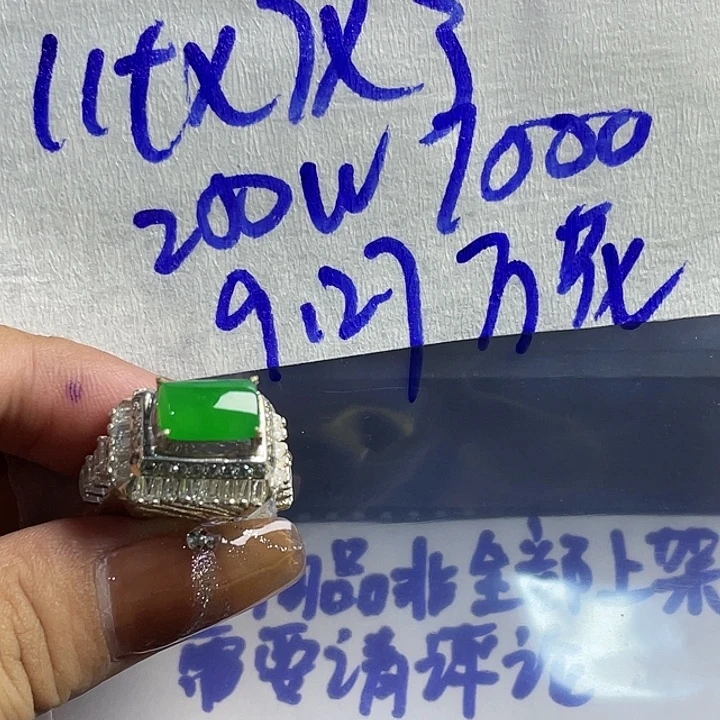 11tx7x3
200W 7000
9.27万
商品非全部上架
需要请评论